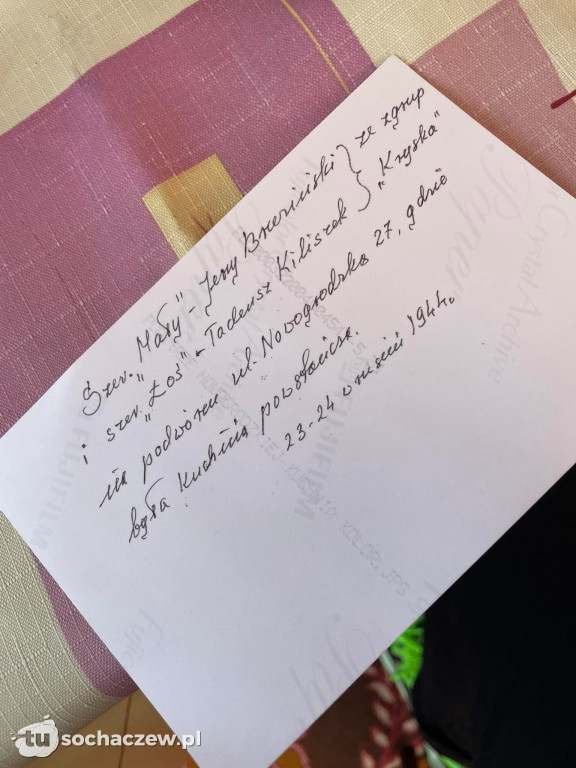 Szer. "Mały" - Jerzy Brzeziński } ze zgrup
i szer. "Łoś" - Tadeusz Kiliszek } "Kryska"
na podwórzu ul. Nowogrodzka 27, gdzie
była kuchnia powstańcza.
23-24 wrzesień 1944.
Crystal Archive
Paper
FUJIFILM
FUJIFILM
tusochaczew.pl